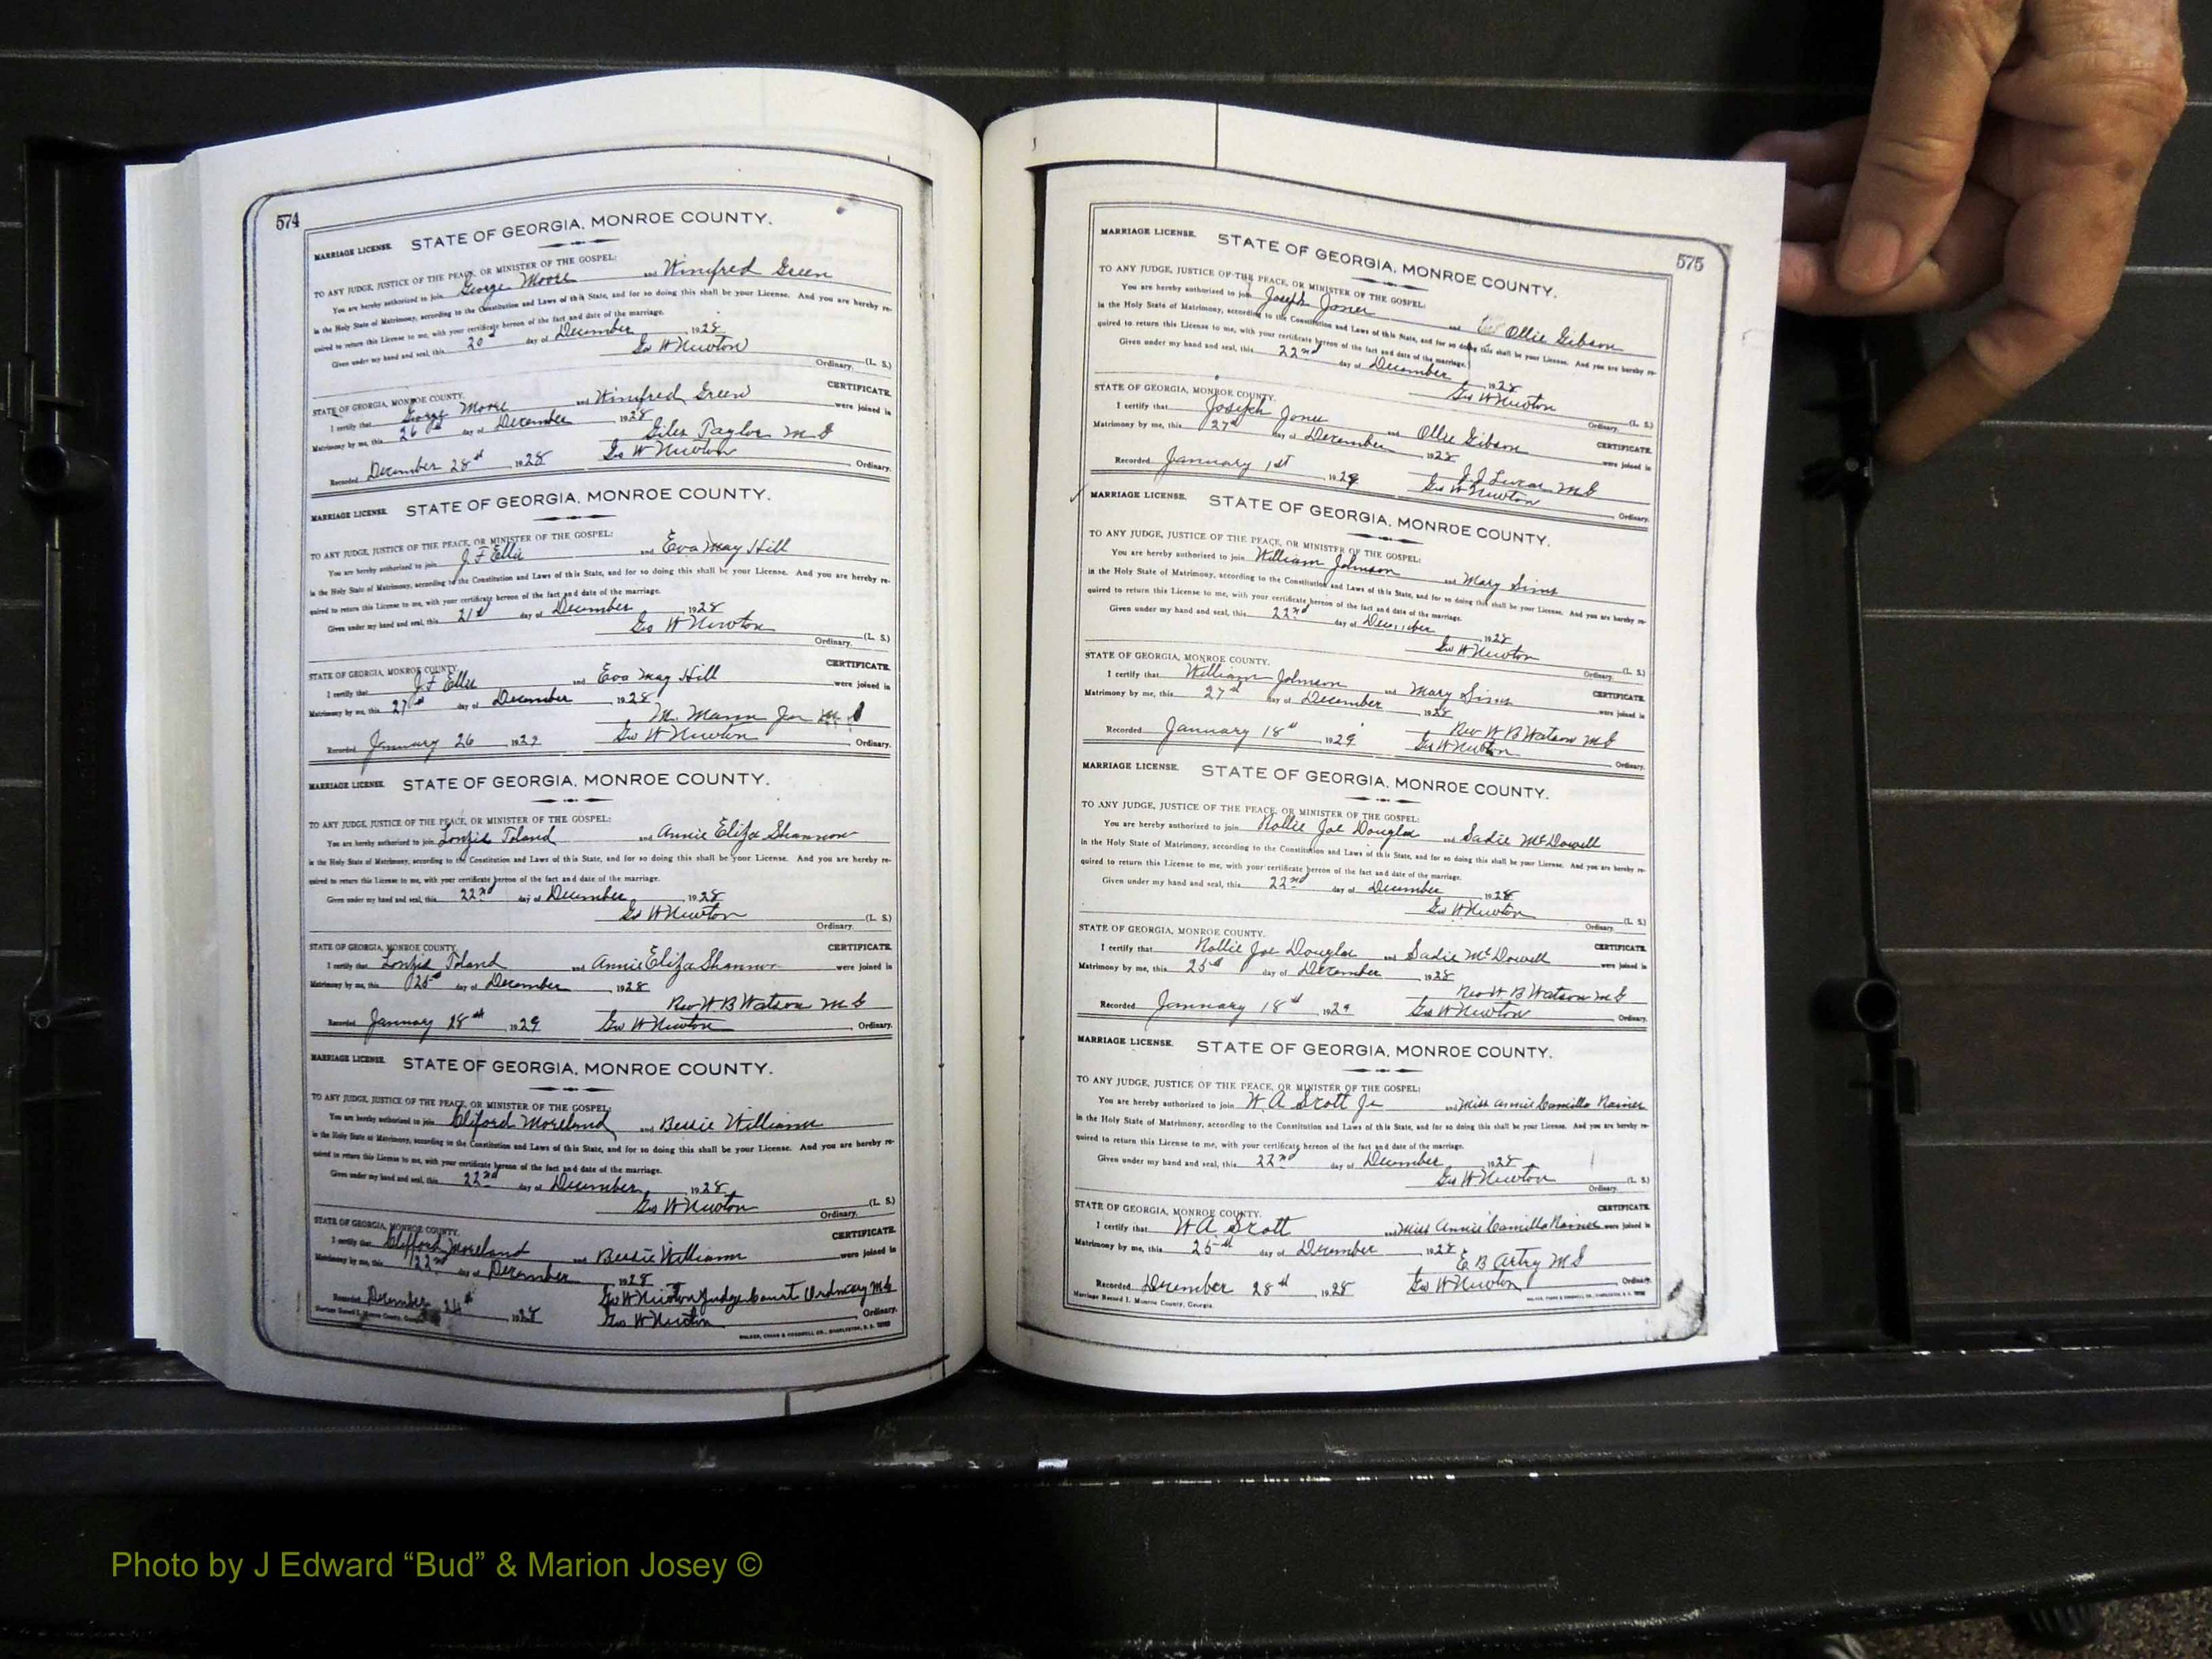 574
MARRIAGE LICENSE. STATE OF GEORGIA, MONROE COUNTY.
TO ANY JUDGE, JUSTICE OF THE PEACE, OR MINISTER OF THE GOSPEL:
You are hereby authorized to join George Moore and Winifred Green
in the Holy State of Matrimony, according to the Constitution and Laws of this State, and for so doing this shall be your License. And you are hereby re-
quired to return this License to me, with your certificate hereon of the fact and date of the marriage.
Given under my hand and seal, this 20th day of December, 1928
Geo W Newton (L. S.)
Ordinary.
STATE OF GEORGIA, MONROE COUNTY. CERTIFICATE.
I certify that George Moore and Winifred Green were joined in
Matrimony by me, this 26th day of December, 1928
Giles Taylor M G
Recorded December 28th, 1928 Geo W Newton Ordinary.
MARRIAGE LICENSE. STATE OF GEORGIA, MONROE COUNTY.
TO ANY JUDGE, JUSTICE OF THE PEACE, OR MINISTER OF THE GOSPEL:
You are hereby authorized to join J F Ellis and Eva May Hill
in the Holy State of Matrimony, according to the Constitution and Laws of this State, and for so doing this shall be your License. And you are hereby re-
quired to return this License to me, with your certificate hereon of the fact and date of the marriage.
Given under my hand and seal, this 21st day of December, 1928
Geo W Newton (L. S.)
Ordinary.
STATE OF GEORGIA, MONROE COUNTY. CERTIFICATE.
I certify that J F Ellis and Eva May Hill were joined in
Matrimony by me, this 27th day of December, 1928
M. Mann M G
Recorded January 26, 1929 Geo W Newton, Ordinary.
MARRIAGE LICENSE. STATE OF GEORGIA, MONROE COUNTY.
TO ANY JUDGE, JUSTICE OF THE PEACE, OR MINISTER OF THE GOSPEL:
You are hereby authorized to join Lonzie Toland and Annie Eliza Shannon
in the Holy State of Matrimony, according to the Constitution and Laws of this State, and for so doing this shall be your License. And you are hereby re-
quired to return this License to me, with your certificate hereon of the fact and date of the marriage.
Given under my hand and seal, this 22nd day of December, 1928
Geo W Newton (L. S.)
Ordinary.
STATE OF GEORGIA, MONROE COUNTY. CERTIFICATE.
I certify that Lonzie Toland and Annie Eliza Shannon were joined in
Matrimony by me, this 25th day of December, 1928
Rev W B Watson M G
Recorded January 18th, 1929 Geo W Newton, Ordinary.
MARRIAGE LICENSE. STATE OF GEORGIA, MONROE COUNTY.
TO ANY JUDGE, JUSTICE OF THE PEACE, OR MINISTER OF THE GOSPEL:
You are hereby authorized to join Cliford Moreland and Bessie Williams
in the Holy State of Matrimony, according to the Constitution and Laws of this State, and for so doing this shall be your License. And you are hereby re-
quired to return this License to me, with your certificate hereon of the fact and date of the marriage.
Given under my hand and seal, this 22nd day of December, 1928
Geo W Newton (L. S.)
Ordinary.
STATE OF GEORGIA, MONROE COUNTY. CERTIFICATE.
I certify that Clifford Moreland and Bessie Williams were joined in
Matrimony by me, this 22nd day of December, 1928
Geo W Newton Judge Court Ordinary M G
Recorded December 26th, 1928 Geo W Newton Ordinary.
Marriage Record I. Monroe County, Georgia. WALKER, EVANS & COGSWELL CO., CHARLESTON, S. C.
575
MARRIAGE LICENSE. STATE OF GEORGIA, MONROE COUNTY.
TO ANY JUDGE, JUSTICE OF THE PEACE, OR MINISTER OF THE GOSPEL:
You are hereby authorized to join Joseph Jones and Ollie Gibson
in the Holy State of Matrimony, according to the Constitution and Laws of this State, and for so doing this shall be your License. And you are hereby re-
quired to return this License to me, with your certificate hereon of the fact and date of the marriage.
Given under my hand and seal, this 22nd day of December, 1928
Geo W Newton (L. S.)
Ordinary.
STATE OF GEORGIA, MONROE COUNTY. CERTIFICATE.
I certify that Joseph Jones and Ollie Gibson were joined in
Matrimony by me, this 27th day of December, 1928
J J Lucas M G
Recorded January 1st, 1929 Geo W Newton Ordinary.
MARRIAGE LICENSE. STATE OF GEORGIA, MONROE COUNTY.
TO ANY JUDGE, JUSTICE OF THE PEACE, OR MINISTER OF THE GOSPEL:
You are hereby authorized to join William Johnson and Mary Sims
in the Holy State of Matrimony, according to the Constitution and Laws of this State, and for so doing this shall be your License. And you are hereby re-
quired to return this License to me, with your certificate hereon of the fact and date of the marriage.
Given under my hand and seal, this 22nd day of December, 1928
Geo W Newton (L. S.)
Ordinary.
STATE OF GEORGIA, MONROE COUNTY. CERTIFICATE.
I certify that William Johnson and Mary Sims were joined in
Matrimony by me, this 27th day of December, 1928
Rev W B Watson M G
Recorded January 18th, 1929 Geo W Newton Ordinary.
MARRIAGE LICENSE. STATE OF GEORGIA, MONROE COUNTY.
TO ANY JUDGE, JUSTICE OF THE PEACE, OR MINISTER OF THE GOSPEL:
You are hereby authorized to join Nollie Joe Douglas and Sadie McDowell
in the Holy State of Matrimony, according to the Constitution and Laws of this State, and for so doing this shall be your License. And you are hereby re-
quired to return this License to me, with your certificate hereon of the fact and date of the marriage.
Given under my hand and seal, this 22nd day of December, 1928
Geo W Newton (L. S.)
Ordinary.
STATE OF GEORGIA, MONROE COUNTY. CERTIFICATE.
I certify that Nollie Joe Douglas and Sadie McDowell were joined in
Matrimony by me, this 25th day of December, 1928
Rev W B Watson M G
Recorded January 18th, 1929 Geo W Newton Ordinary.
MARRIAGE LICENSE. STATE OF GEORGIA, MONROE COUNTY.
TO ANY JUDGE, JUSTICE OF THE PEACE, OR MINISTER OF THE GOSPEL:
You are hereby authorized to join W A Scott Jr and Miss Annie Camilla Rainer
in the Holy State of Matrimony, according to the Constitution and Laws of this State, and for so doing this shall be your License. And you are hereby re-
quired to return this License to me, with your certificate hereon of the fact and date of the marriage.
Given under my hand and seal, this 22nd day of December, 1928
Geo W Newton (L. S.)
Ordinary.
STATE OF GEORGIA, MONROE COUNTY. CERTIFICATE.
I certify that W A Scott and Miss Annie Camilla Rainer were joined in
Matrimony by me, this 25th day of December, 1928
E B Artry M G
Recorded December 28th, 1928 Geo W Newton Ordinary.
Marriage Record I. Monroe County, Georgia. WALKER, EVANS & COGSWELL CO., CHARLESTON, S. C.
Photo by J Edward “Bud” & Marion Josey ©